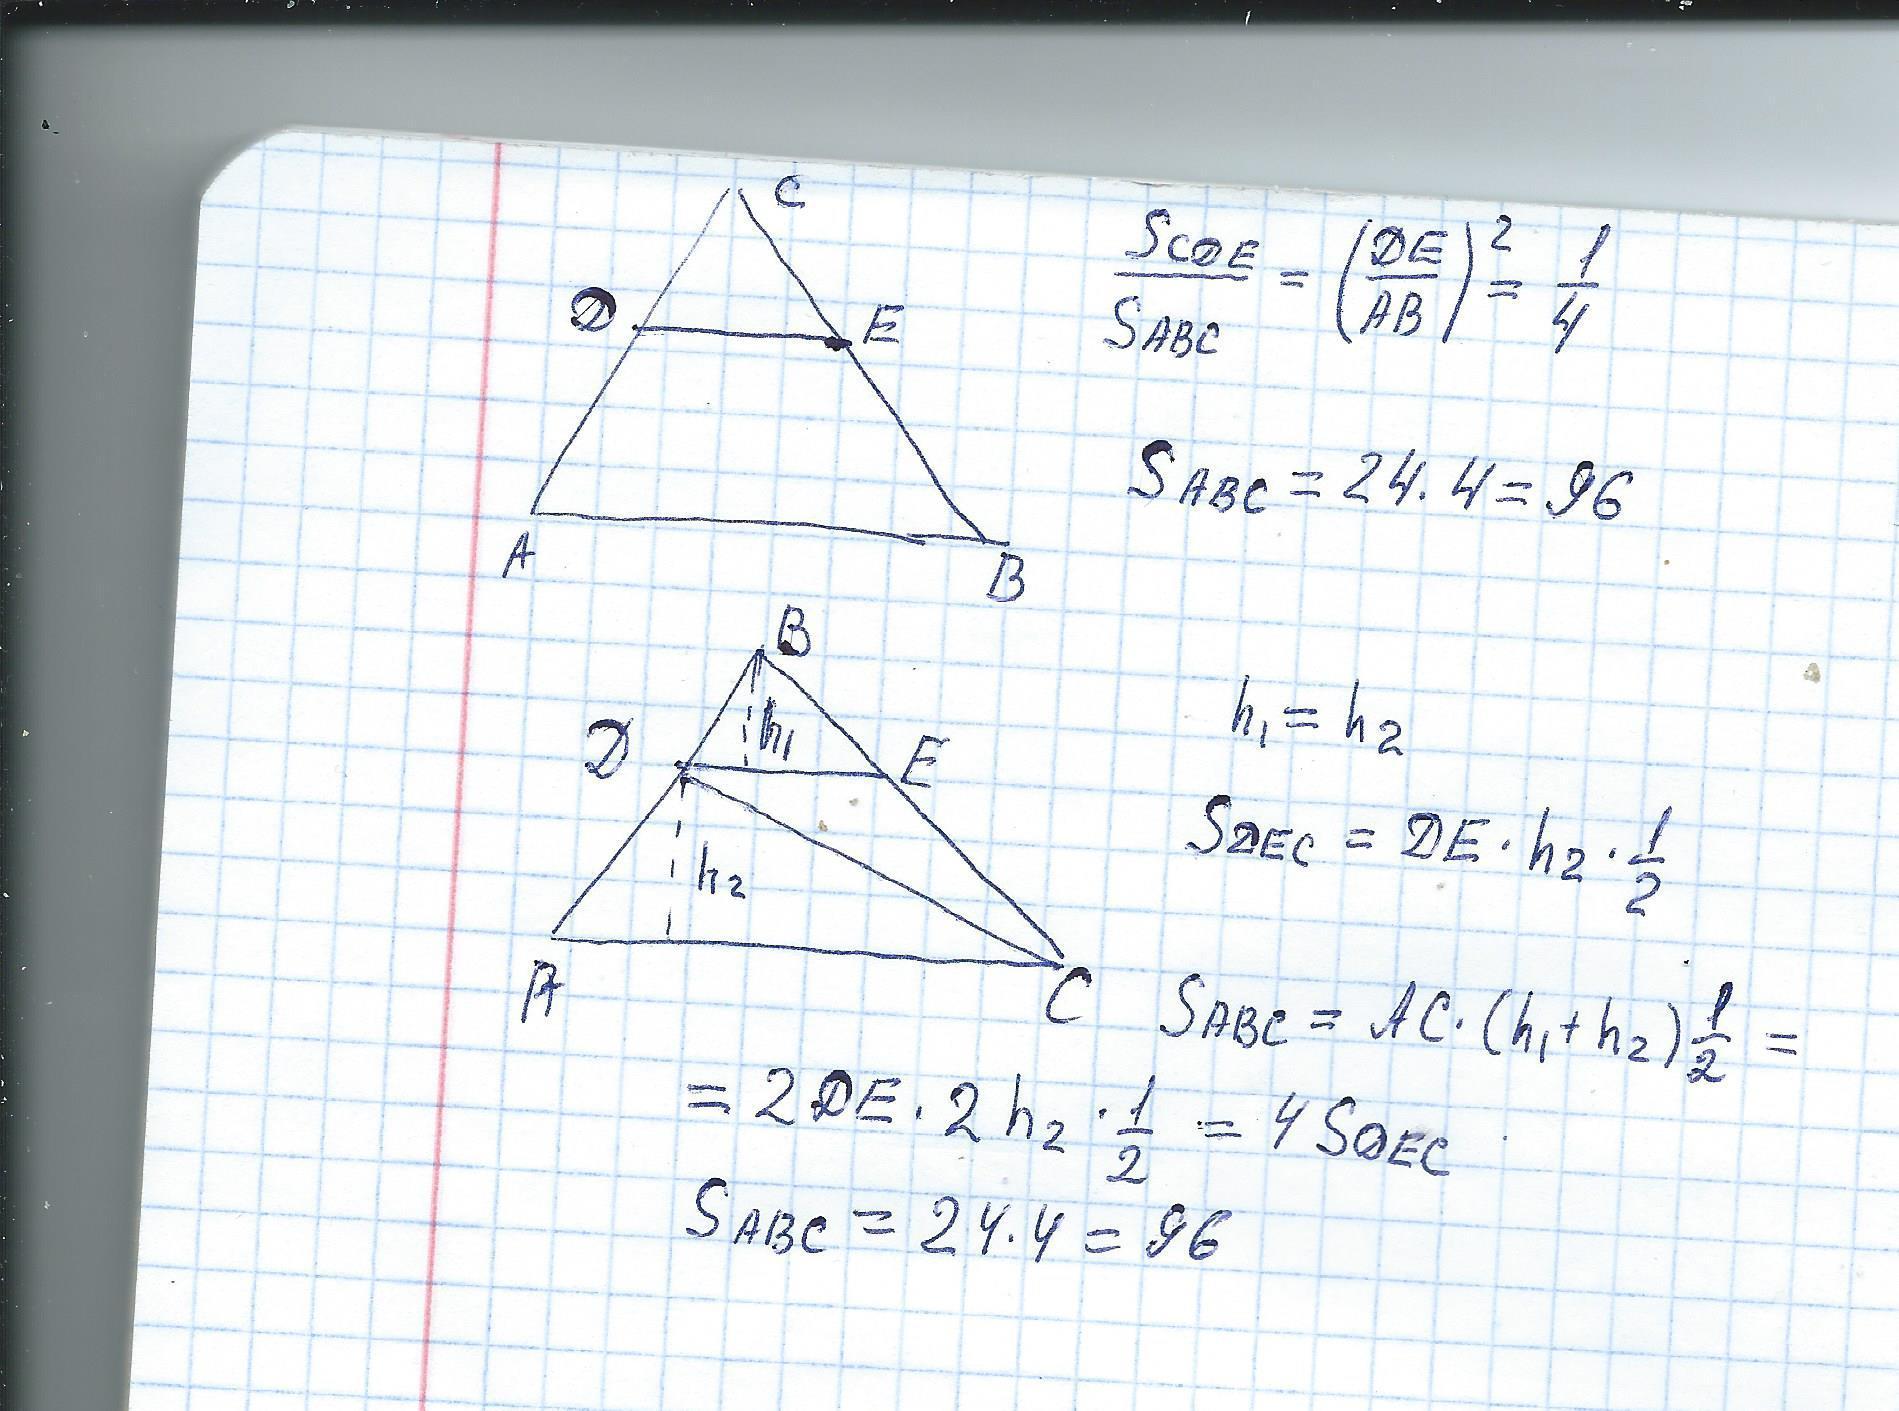 C
D E
A B
S_CDE / S_ABC = (DE / AB)² = 1/4
S_ABC = 24 · 4 = 96
B
D h₁ E
h₂
A C
h₁ = h₂
S_DEC = DE · h₂ · 1/2
S_ABC = AC · (h₁ + h₂) 1/2 =
= 2DE · 2h₂ · 1/2 = 4 S_DEC
S_ABC = 24 · 4 = 96